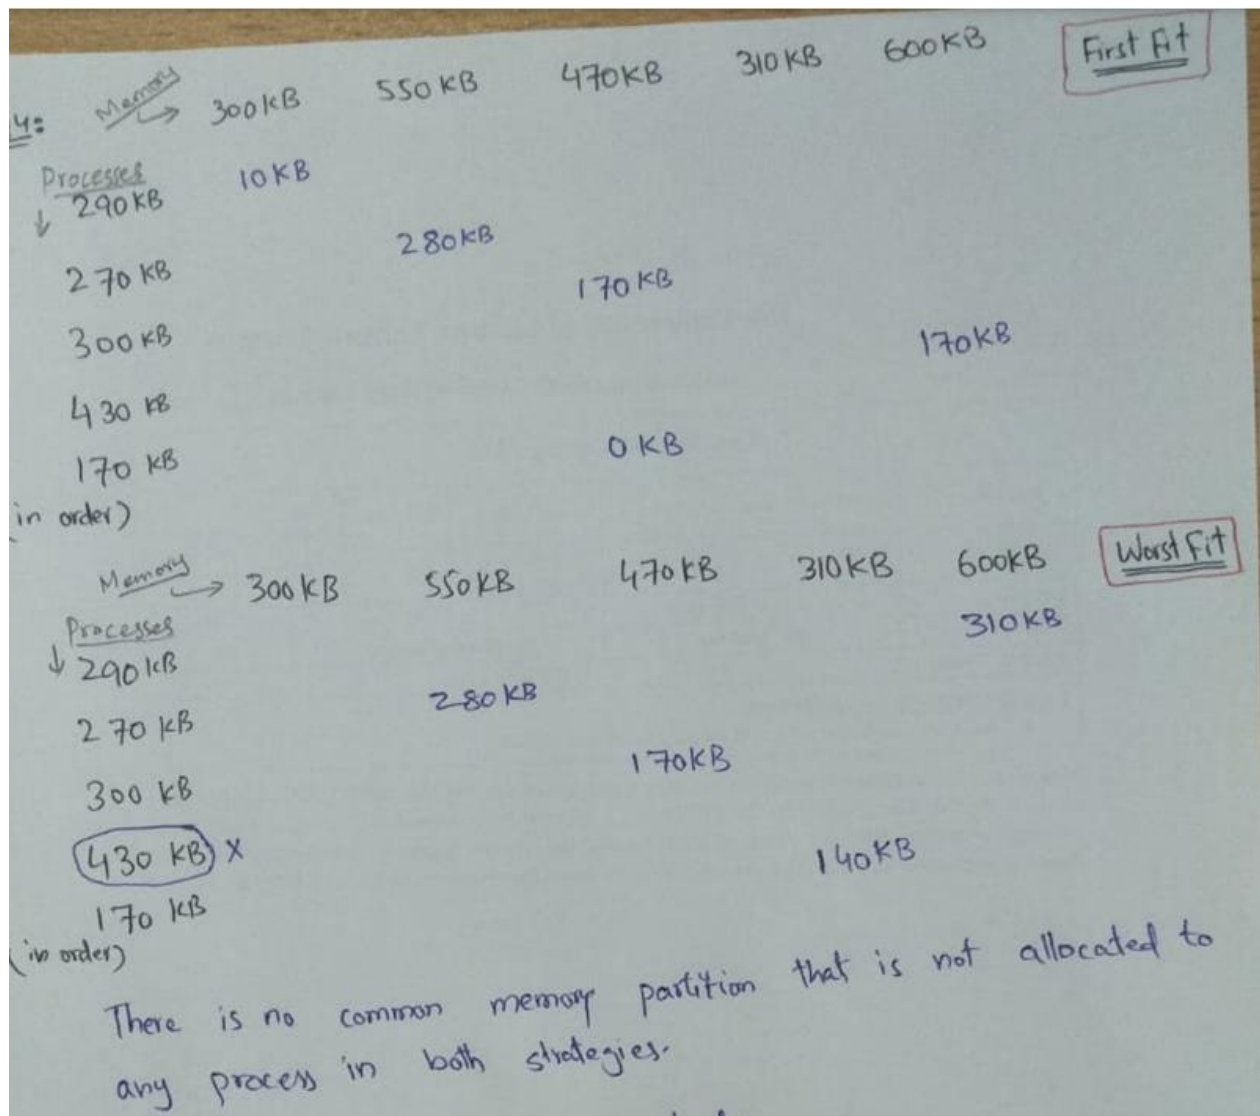 4:
Memory → 300KB 550KB 470KB 310KB 600KB First Fit
Processes
↓ 290KB 10KB
270 KB 280KB
300KB 170KB
430 KB 170KB
170 KB 0KB
in order)
Memory → 300KB 550KB 470KB 310KB 600KB Worst Fit
Processes
↓ 290KB 310KB
270 KB 280KB
300 KB 170KB
430 KB X
170 KB 140KB
(in order)
There is no common memory partition that is not allocated to
any process in both strategies.